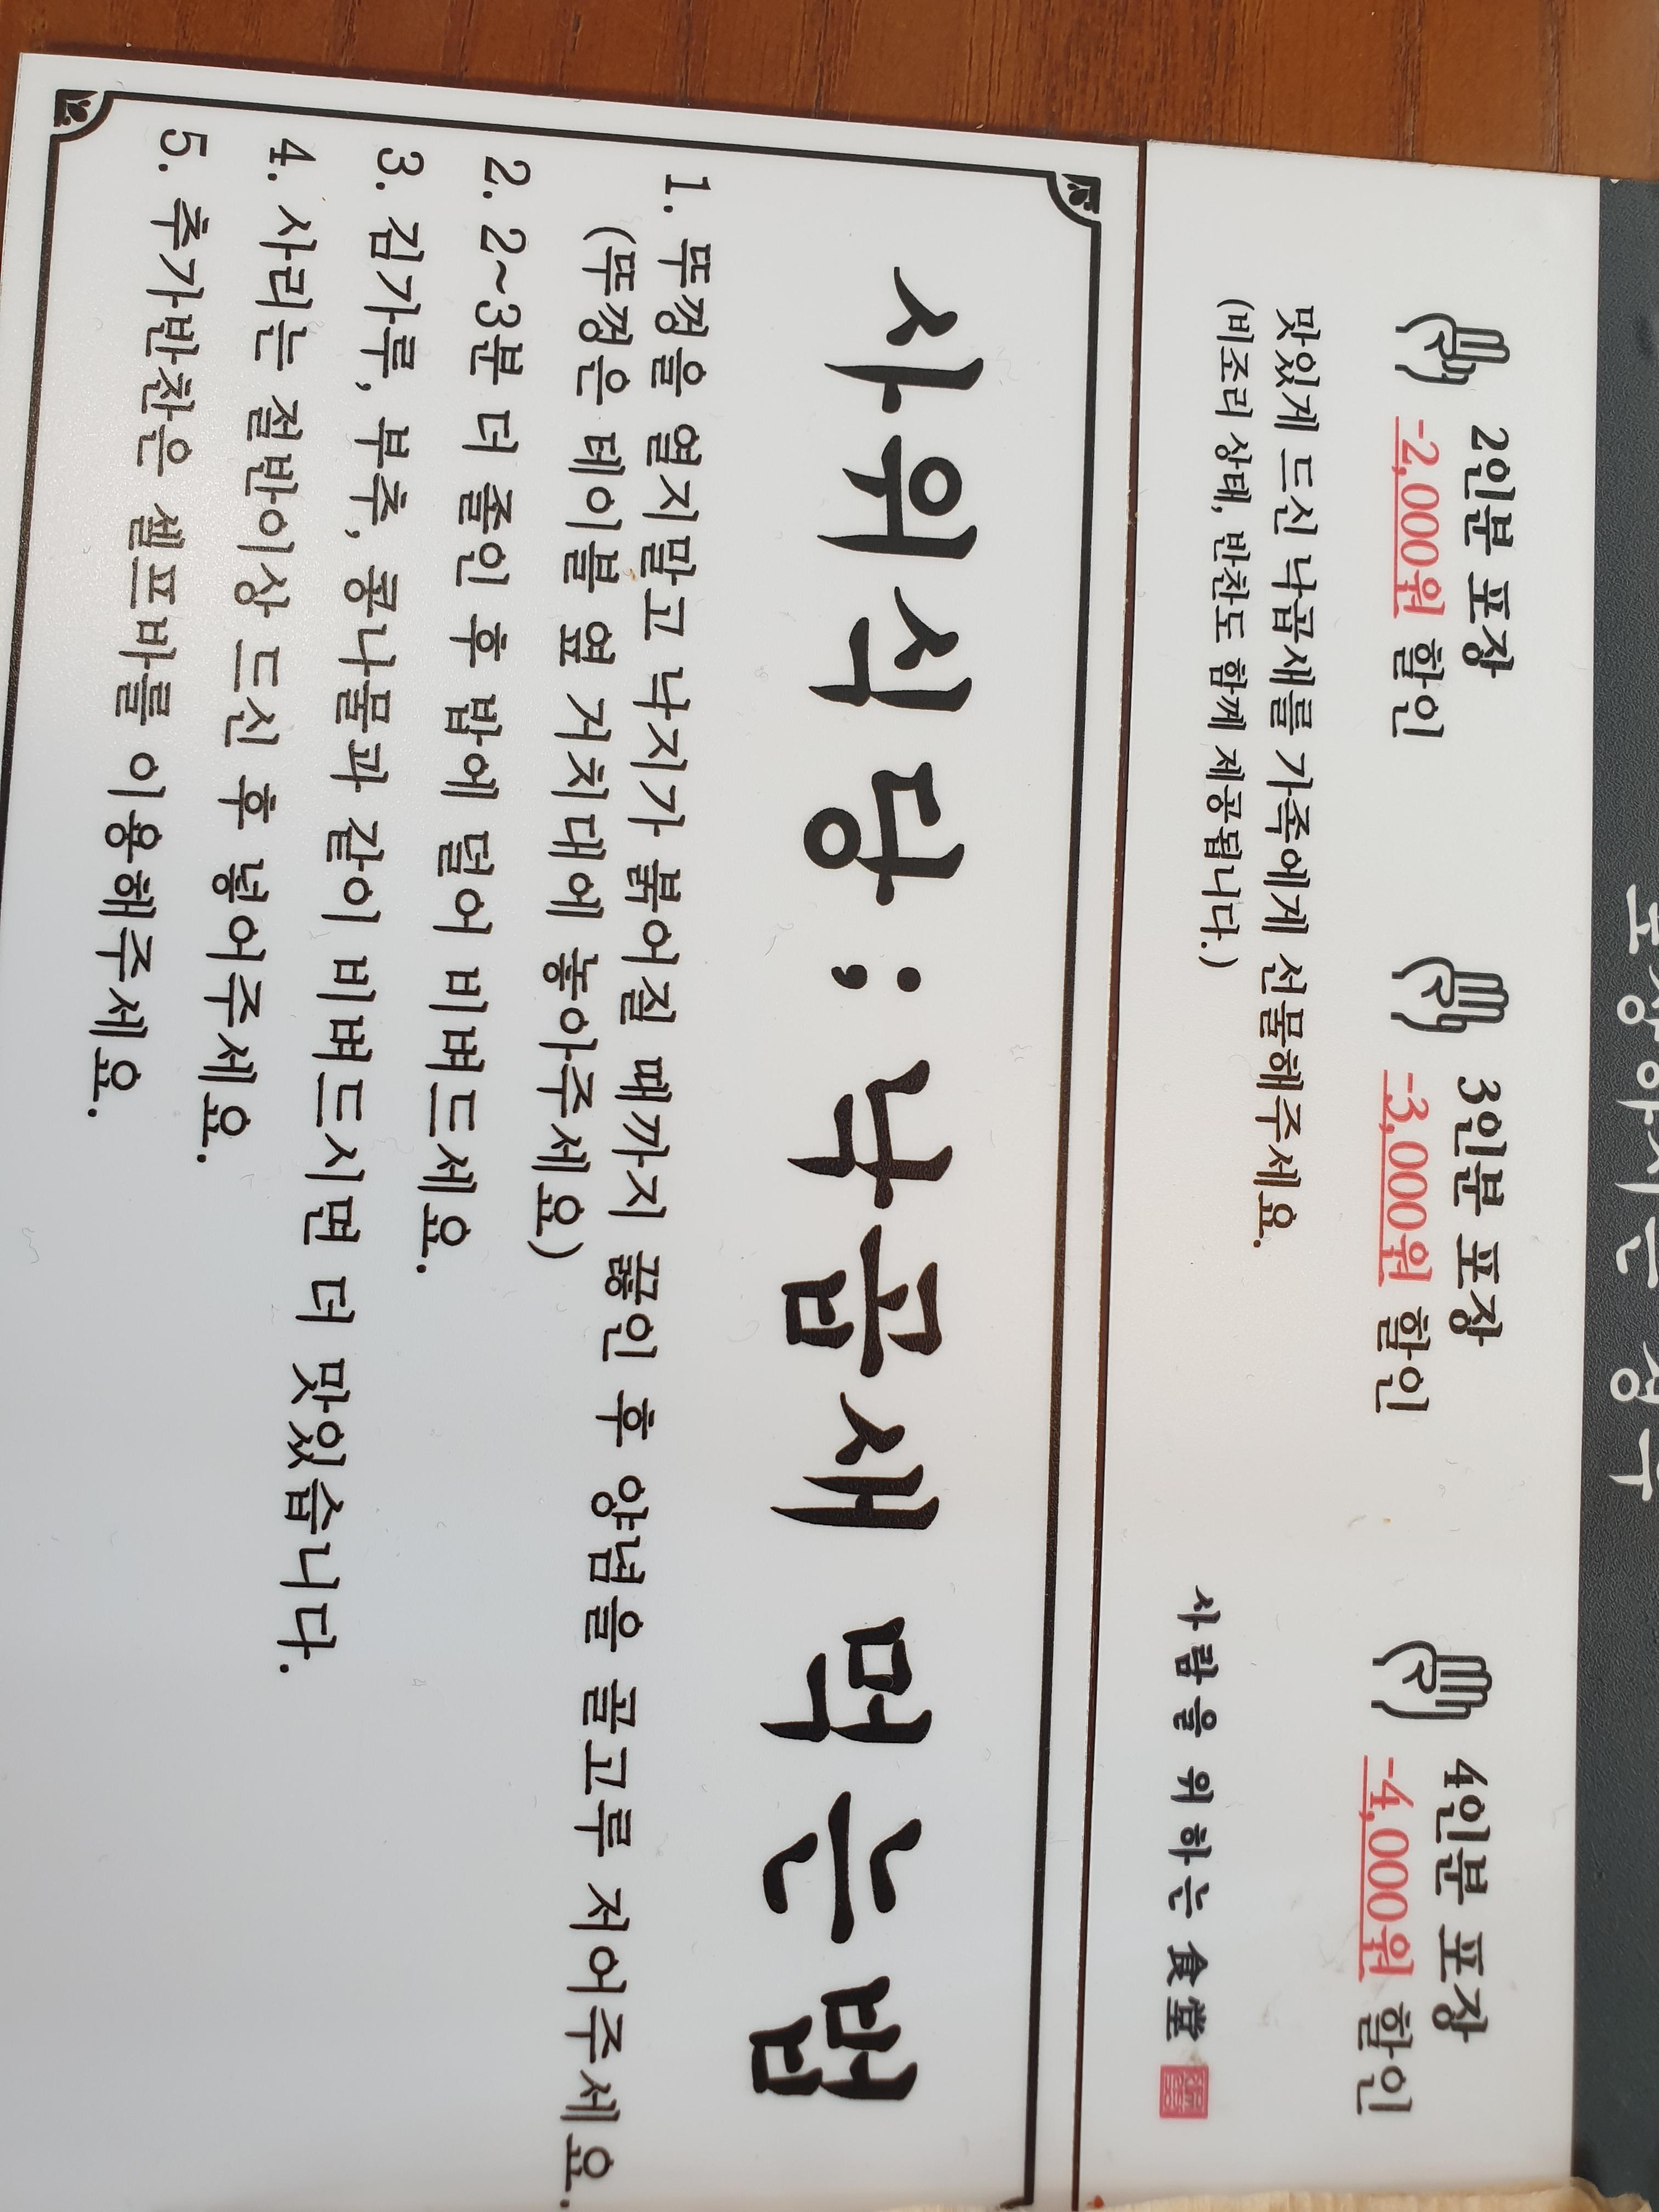 포장하시는 경우
2인분 포장
-2,000원 할인
3인분 포장
-3,000원 할인
4인분 포장
-4,000원 할인
맛있게 드신 낙곱새를 가족에게 선물해주세요.
(비조리 상태, 반찬도 함께 제공됩니다.)
사람을 위하는 食堂
사위식당 ; 낙곱새 먹는법
1. 뚜껑을 열지말고 낙지가 붉어질 때까지 끓인 후 양념을 골고루 저어주세요.
(뚜껑은 테이블 옆 거치대에 놓아주세요)
2. 2~3분 더 졸인 후 밥에 덜어 비벼드세요.
3. 김가루, 부추, 콩나물과 같이 비벼드시면 더 맛있습니다.
4. 사리는 절반이상 드신 후 넣어주세요.
5. 추가반찬은 셀프바를 이용해주세요.